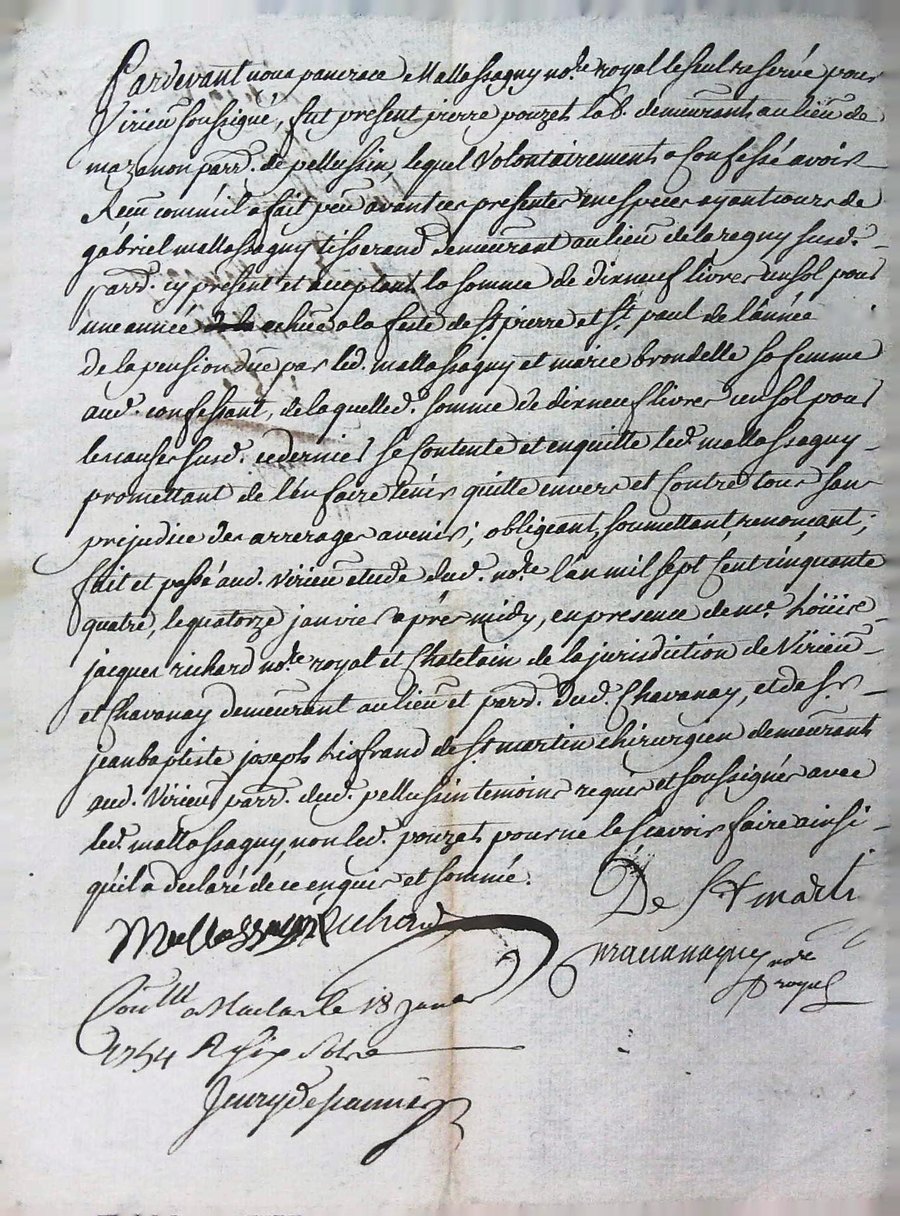 Pardevant nous pancrace Mallassagny no.re royal le seul reservé pour
Virieu soussigné, fut present pierre pouzet lab.r demeurant au lieu de
mazonon parr. de pellussin, lequel Volontairement a Confessé avoir
Receu comm'il a fait peu avant ces presentes en especes ayant cours de
gabriel mallassagny tisserand demeurant au lieu de laregny susd.
parr. cy present et acceptant la somme de dixneuf livres un sol pour
une année echue a la feste de st. pierre et st. paul de l'année
de la pension due par led. mallassagny et marie brondelle sa femme
aud. confessant, de laquelle d. somme de dixneuf livres un sol pour
les causes susd. ce dernier se Contente et en quitte led. mallassagny
promettant de l'en faire tenir quitte envers et Contre tous sans
prejudice des arrerages avenir; obligeant, soumettant, renonçant;
fait et passé aud. Virieu etude dud. no.re l'an mil sept Cent cinquante
quatre, le quatorze janvier après midy, en presence de me. Loüis
jacques richard no.re royal et Chatelain de la jurisdiction de Virieu
et Chavanay demeurant au lieu et parr. dud. Chavanay, et de sr.
jean baptiste joseph lisfrand de st. martin chirurgien demeurant
aud. Virieu parr. dud. pellussin temoins requis et soussignés avec
led. mallassagny, non led. pouzet pour ne le scavoir faire ainsi
qu'il a declaré de ce enquis et sommé.
De St marti
Mallassagny Richard
no.re
royal
Con.lle a Maclas le 18 janvier
1754 R six sols